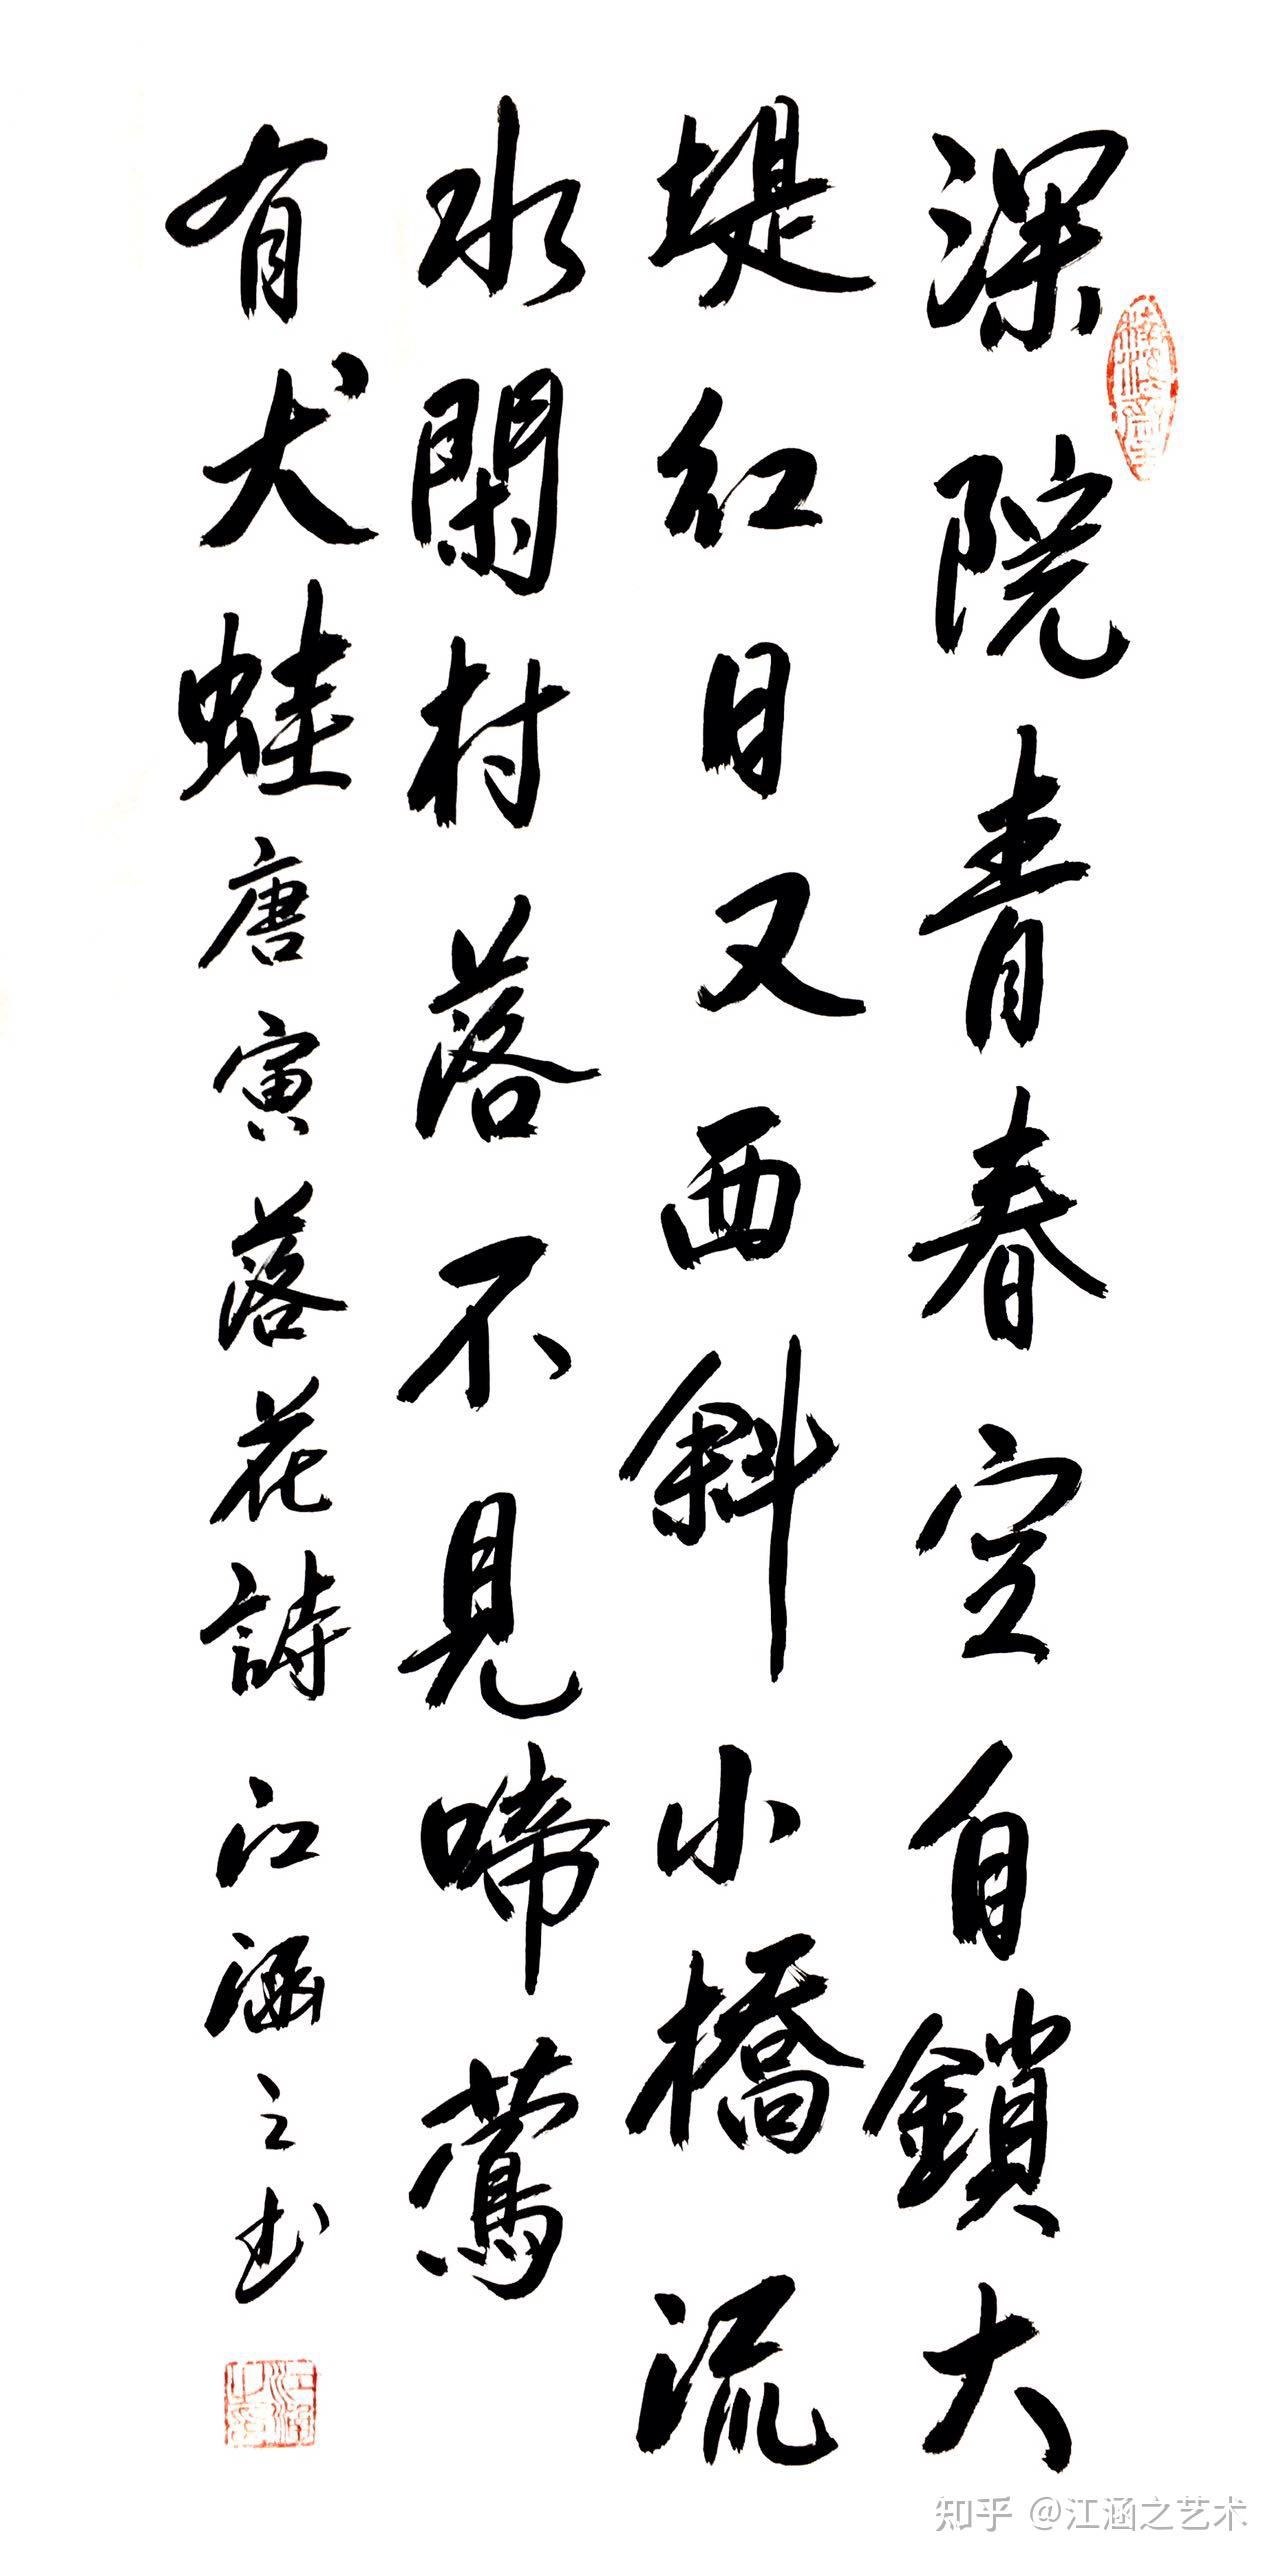 深院青春空自鎖大
堤紅日又西斜小橋流
水閑村落不見啼鶯
有犬蛙唐寅落花詩江涵之书
知乎 @江涵之艺术